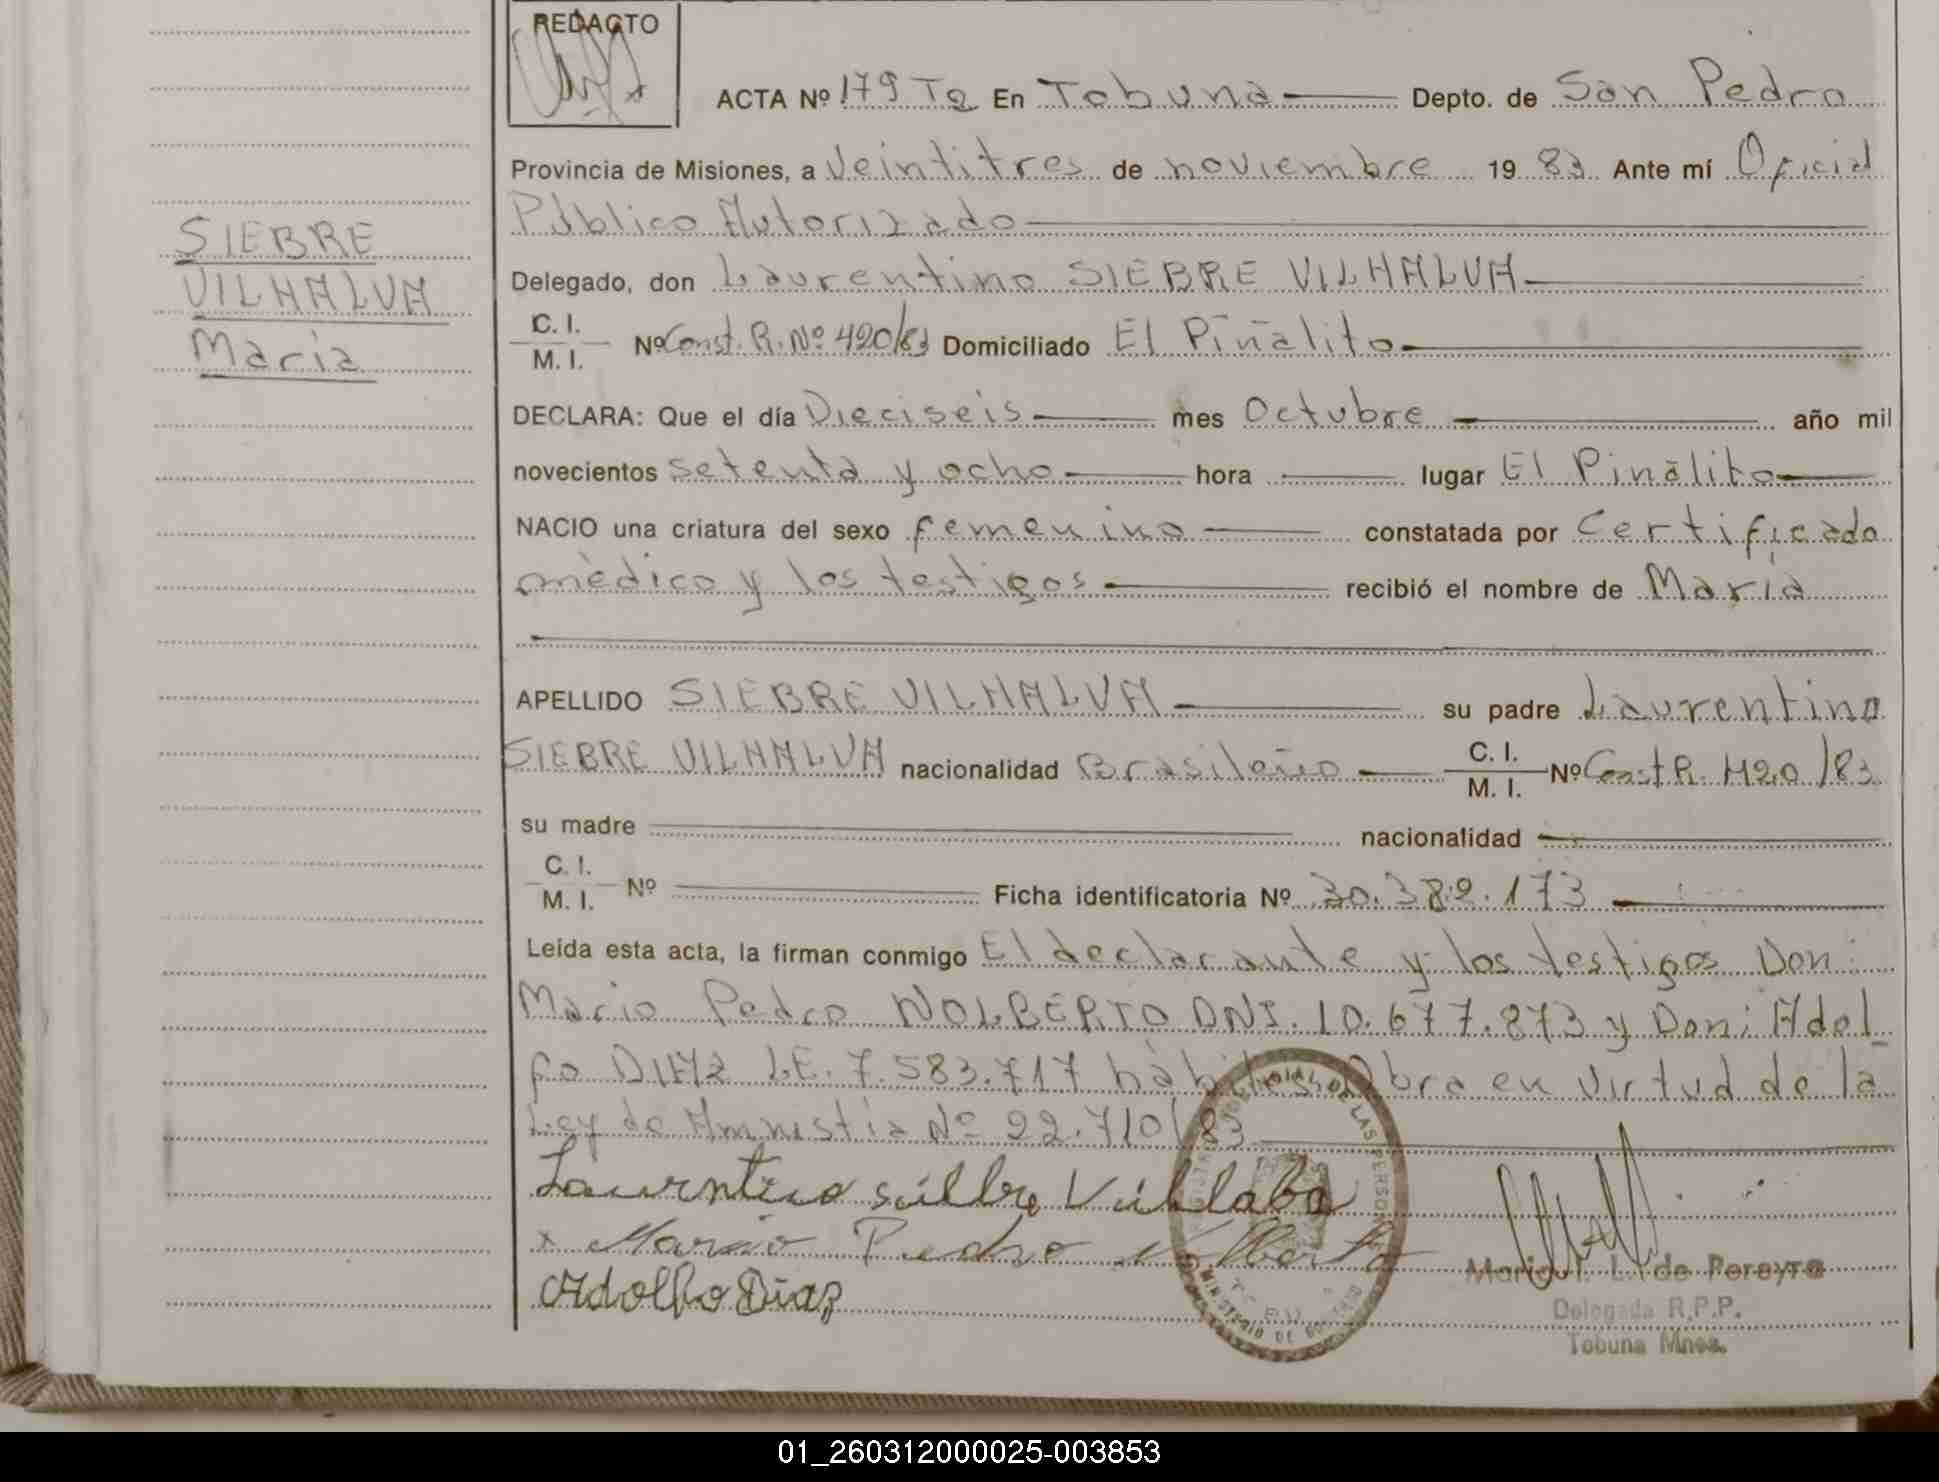 REDACTO
ACTA Nº 179 T2 En Tobuna Depto. de San Pedro
Provincia de Misiones, a Veintitres de noviembre 19 83 Ante mí Oficial
Público Autorizado
SIEBRE
VILHALVA
Maria
Delegado, don Laurentino SIEBRE VILHALVA
C. I.
M. I. Nº Const. R. Nº 420/83 Domiciliado El Piñalito
DECLARA: Que el día Dieciseis mes Octubre año mil
novecientos setenta y ocho hora lugar El Piñalito
NACIO una criatura del sexo femenino constatada por Certificado
médico y los testigos recibió el nombre de María
APELLIDO SIEBRE VILHALVA su padre Laurentino
SIEBRE VILHALVA nacionalidad Brasileño C. I.
M. I. Nº Const R. 420/83
su madre nacionalidad
C. I.
M. I. Nº Ficha identificatoria Nº 30.382.173
Leída esta acta, la firman conmigo El declarante y los testigos Don:
Mario Pedro NOLBERTO DNI. 10.677.873 y Don: Adol
fo DIAZ L.E. 7.583.717 hábiles. Obra en virtud de la
Ley de Amnistía Nº 22.710/83
Laurntino
x Mario Pedro Nolberto
Adolfo Diaz
L. de Pereyra
Delegada R.P.P.
Tobuna Mnes.
01_260312000025-003853